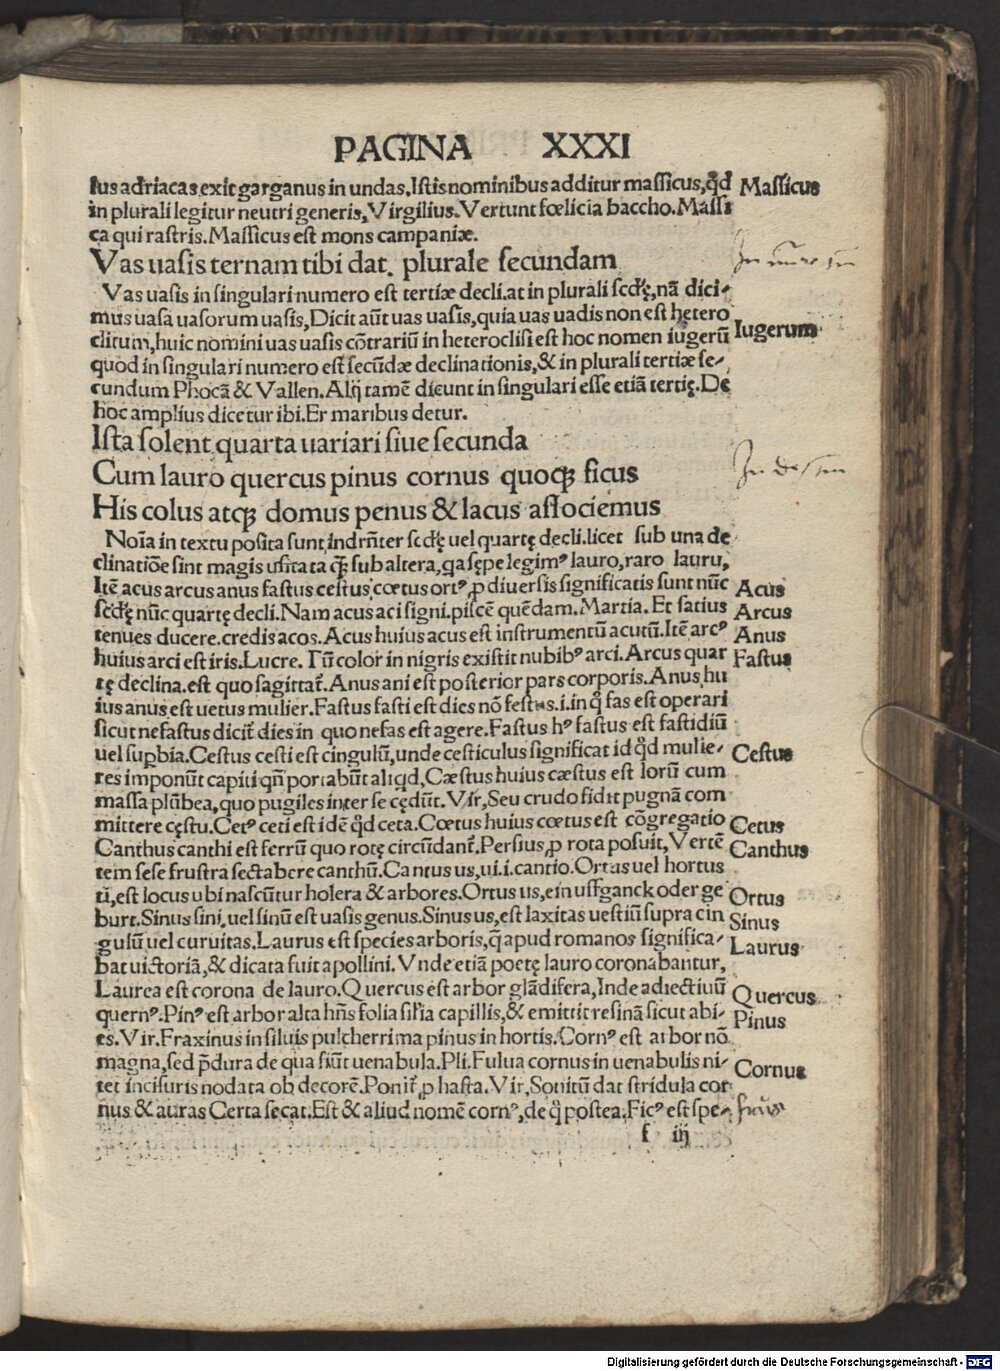 PAGINA XXXI
ſus adriacas exit garganus in undas. Iſtis nominibus additur maſſicus, qd̄ Maſſicus
in plurali legitur neutri generis, Virgilius. Vertunt fœlicia baccho. Maſſi
ca qui raſtris. Maſſicus eſt mons campaniæ.
Vas uaſis ternam tibi dat. plurale ſecundam
Vas uaſis in ſingulari numero eſt tertiæ decli. at in plurali ſcd̄ę, nā dici-
mus uaſa uaſorum uaſis, Dicit aūt uas uaſis, quia uas uadis non eſt hetero
clitum, huic nomini uas uaſis cōtrariū in heterocliſi eſt hoc nomen iugerū Iugerum
quod in ſingulari numero eſt ſecūdæ declinationis, & in plurali tertiæ ſe-
cundum Phocā & Vallen. Alq̄ tamē dicunt in ſingulari eſſe etiā tertię. De
hoc amplius dicetur ibi. Er maribus detur.
Iſta ſolent quarta uariari ſiue ſecunda
Cum lauro quercus pinus cornus quoqꝫ ficus
His colus atqꝫ domus penus & lacus aſſociemus
Noīa in textu poſita ſunt indr̄nter ſcd̄ę uel quartę decli. licet ſub una de
clinatiōe ſint magis uſitata q̄ ſub altera, qa ſępe legimꝰ lauro, raro lauru,
Itē acus arcus anus faſtus ceſtus cœtus ortꝰ, ꝓ diuerſis ſignificatis ſunt nūc Acus
ſcd̄ę nūc quartę decli. Nam acus aci ſigni. piſcē quēdam. Martia. Et ſatius Arcus
tenues ducere. credis acos. Acus huius acus eſt inſtrumentū acutū. Itē arcꝰ Anus
huius arci eſt iris. Lucre. Tū color in nigris exiſtit nubibꝰ arci. Arcus quar Faſtus
tę declina. eſt quo ſagittat̄. Anus ani eſt poſterior pars corporis. Anus hu
ius anus eſt uetus mulier. Faſtus faſti eſt dies nō feſtus. i. in q̄ fas eſt operari
ſicut nefaſtus dicit̄ dies in quo nefas eſt agere. Faſtus hꝰ faſtus eſt faſtidiū
uel ſuꝑbia. Ceſtus ceſti eſt cingulū, unde ceſticulus ſignificat id qd̄ mulie- Ceſtus
res imponūt capiti qn̄ portabūt aliqd, Cæſtus huius cæſtus eſt lorū cum
maſſa plūbea, quo pugiles inter ſe cędūt. Vir, Seu crudo fidit pugnā com
mittere cęſtu. Cetꝰ ceti eſt idē qd̄ ceta. Cœtus huius cœtus eſt cōgregatio Cetus
Canthus canthi eſt ferrū quo rotę circūdant̄. Perſius, ꝓ rota poſuit, Vertē Canthus
tem ſeſe fruſtra ſectabere canthū. Cantus us, ui. i. cantio. Ortus uel hortus
ti, eſt locus ubi naſcūtur holera & arbores. Ortus us, ein uffganck oder ge Ortus
burt. Sinus ſini, uel ſinū eſt uaſis genus. Sinus us, eſt laxitas ueſtiū ſupra cin Sinus
gulū uel curuitas. Laurus eſt ſpecies arboris, q̄ apud romanos ſignifica- Laurus
bat uictoriā, & dicata fuit apollini. Vnde etiā poetę lauro coronabantur,
Laurea eſt corona de lauro. Quercus eſt arbor glādifera, Inde adiectiuū Quercus
quernꝰ. Pinꝰ eſt arbor alta hn̄s folia ſil̄ia capillis, & emittit reſinā ſicut abi- Pinus
es. Vir. Fraxinus in ſiluis pulcherrima pinus in hortis. Cornꝰ eſt arbor nō
magna, ſed p̄dura de qua fiūt uenabula. Pli. Fulua cornus in uenabulis ni- Cornus
tet inciſuris nodata ob decorē. Ponit̄ ꝓ haſta. Vir, Sonitū dat ſtridula cor
nus & auras Certa ſecat. Eſt & aliud nomē cornꝰ, de q̄ poſtea. Ficꝰ eſt ſpe- ficus
f iij
Digitalisierung gefördert durch die Deutsche Forschungsgemeinschaft - DFG